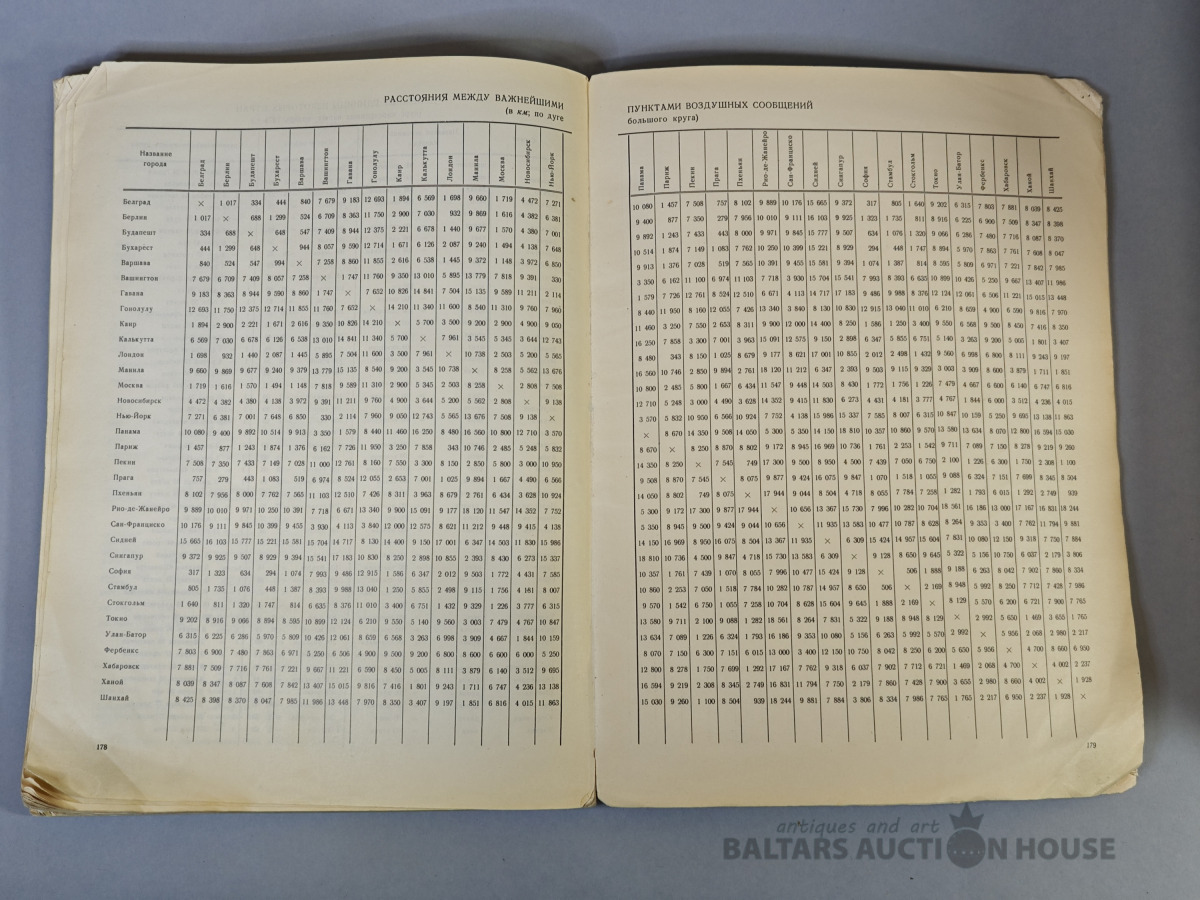 РАССТОЯНИЯ МЕЖДУ ВАЖНЕЙШИМИ
(в км; по дуге
Название
города
Белград Берлин Будапешт Бухарест Варшава Вашингтон Гавана Гонолулу Каир Калькутта Лондон Манила Москва Новосибирск Нью-Йорк
Белград × 1 017 334 444 840 7 679 9 183 12 693 1 894 6 569 1 698 9 660 1 719 4 472 7 271
Берлин 1 017 × 688 1 299 524 6 709 8 363 11 750 2 900 7 030 932 9 869 1 616 4 382 6 381
Будапешт 334 688 × 648 547 7 409 8 944 12 375 2 221 6 678 1 440 9 677 1 570 4 380 7 001
Бухарест 444 1 299 648 × 944 8 057 9 590 12 714 1 671 6 126 2 087 9 240 1 494 4 138 7 648
Варшава 840 524 547 994 × 7 258 8 860 11 855 2 616 6 538 1 445 9 372 1 148 3 972 6 850
Вашингтон 7 679 6 709 7 409 8 057 7 258 × 1 747 11 760 9 350 13 010 5 895 13 779 7 818 9 391 330
Гавана 9 183 8 363 8 944 9 590 8 860 1 747 × 7 652 10 826 14 841 7 504 15 135 9 589 11 211 2 114
Гонолулу 12 693 11 750 12 375 12 714 11 855 11 760 7 652 × 14 210 11 340 11 600 8 540 11 310 9 760 7 960
Каир 1 894 2 900 2 221 1 671 2 616 9 350 10 826 14 210 × 5 700 3 500 9 200 2 900 4 900 9 050
Калькутта 6 569 7 030 6 678 6 126 6 538 13 010 14 841 11 340 5 700 × 7 961 3 545 5 345 3 644 12 743
Лондон 1 698 932 1 440 2 087 1 445 5 895 7 504 11 600 3 500 7 961 × 10 738 2 503 5 200 5 565
Манила 9 660 9 869 9 677 9 240 9 379 13 779 15 135 8 540 9 200 3 545 10 738 × 8 258 5 562 13 676
Москва 1 719 1 616 1 570 1 494 1 148 7 818 9 589 11 310 2 900 5 345 2 503 8 258 × 2 808 7 508
Новосибирск 4 472 4 382 4 380 4 138 3 972 9 391 11 211 9 760 4 900 3 644 5 200 5 562 2 808 × 9 138
Нью-Йорк 7 271 6 381 7 001 7 648 6 850 330 2 114 7 960 9 050 12 743 5 565 13 676 7 508 9 138 ×
Панама 10 080 9 400 9 892 10 514 9 913 3 350 1 579 8 440 11 460 16 250 8 480 16 560 10 800 12 710 3 570
Париж 1 457 877 1 243 1 874 1 376 6 162 7 726 11 950 3 250 7 858 343 10 746 2 485 5 248 5 832
Пекин 7 508 7 350 7 433 7 149 7 028 11 000 12 761 8 160 7 550 3 300 8 150 2 850 5 800 3 000 10 950
Прага 757 279 443 1 083 519 6 974 8 524 12 055 2 653 7 001 1 025 9 894 1 667 4 490 6 566
Пхеньян 8 102 7 956 8 000 7 762 7 565 11 103 12 510 7 426 8 311 3 963 8 679 2 761 6 434 3 628 10 924
Рио-де-Жанейро 9 889 10 010 9 971 10 250 10 391 7 718 6 671 13 340 9 900 15 091 9 177 18 120 11 547 14 352 7 752
Сан-Франциско 10 176 9 111 9 845 10 399 9 455 3 930 4 113 3 840 12 000 12 575 8 621 11 212 9 448 9 415 4 138
Сидней 15 665 16 103 15 777 15 221 15 581 15 704 14 717 8 130 14 400 9 150 17 001 6 347 14 503 11 830 15 986
Сингапур 9 372 9 925 9 507 8 929 9 394 15 541 17 183 10 830 8 250 2 898 10 855 2 393 8 430 6 273 15 337
София 317 1 323 634 294 1 074 7 993 9 486 12 915 1 586 6 347 2 012 9 503 1 772 4 431 7 585
Стамбул 805 1 735 1 076 448 1 387 8 393 9 988 13 040 1 250 5 855 2 498 9 115 1 756 4 161 8 007
Стокгольм 1 640 811 1 320 1 747 814 6 635 8 376 11 010 3 400 6 751 1 432 9 329 1 226 3 777 6 315
Токио 9 202 8 916 9 066 8 894 8 595 10 899 12 124 6 210 9 550 5 140 9 560 3 003 7 479 4 767 10 847
Улан-Батор 6 315 6 225 6 286 5 970 5 809 10 426 12 061 8 659 6 568 3 263 6 998 3 909 4 667 1 844 10 159
Фербенкс 7 803 6 900 7 480 7 863 6 971 5 250 6 506 4 900 9 500 9 200 6 800 8 600 6 600 6 000 5 250
Хабаровск 7 881 7 509 7 716 7 761 7 221 9 667 11 221 6 590 8 450 5 005 8 111 3 879 6 140 3 512 9 695
Ханой 8 039 8 347 8 087 7 608 7 842 13 407 15 015 9 816 7 416 1 801 9 243 1 711 6 747 4 236 13 138
Шанхай 8 425 8 398 8 370 8 047 7 985 11 986 13 448 7 970 8 350 3 407 9 197 1 851 6 816 4 015 11 863
178
ПУНКТАМИ ВОЗДУШНЫХ СООБЩЕНИЙ
большого круга)
Панама Париж Пекин Прага Пхеньян Рио-де-Жанейро Сан-Франциско Сидней Сингапур София Стамбул Стокгольм Токио Улан-Батор Фербенкс Хабаровск Ханой Шанхай
10 080 1 457 7 508 757 8 102 9 889 10 176 15 665 9 372 317 805 1 640 9 202 6 315 7 863 7 881 8 039 8 425
9 400 877 7 350 279 7 956 10 010 9 111 16 103 9 925 1 323 1 735 811 8 916 6 225 6 900 7 509 8 347 8 398
9 892 1 243 7 433 443 8 000 9 971 9 845 15 777 9 507 634 1 076 1 320 9 066 6 286 7 480 7 716 8 087 8 370
10 514 1 874 7 149 1 083 7 762 10 250 10 399 15 221 8 929 294 448 1 747 8 894 5 970 7 863 7 761 7 608 8 047
9 913 1 376 7 028 519 7 565 10 391 9 455 15 581 9 394 1 074 1 387 814 8 595 5 809 6 971 7 221 7 842 7 985
3 350 6 162 11 100 6 974 11 103 7 718 3 930 15 704 15 541 7 993 8 393 6 635 10 899 10 426 5 250 9 667 13 407 11 986
1 579 7 726 12 761 8 524 12 510 6 671 4 113 14 717 17 183 9 486 9 988 8 376 12 124 12 061 6 506 11 221 15 015 13 448
8 440 11 950 8 160 12 055 7 426 13 340 3 840 8 130 10 830 12 915 13 040 11 010 6 210 8 659 4 900 6 590 9 816 7 970
11 460 3 250 7 550 2 653 8 311 9 900 12 000 14 400 8 250 1 586 1 250 3 400 9 550 6 568 9 500 8 450 7 416 8 350
16 250 7 858 3 300 7 001 3 963 15 091 12 575 9 150 2 898 6 347 5 855 6 751 5 140 3 263 9 200 5 005 1 801 3 407
8 480 343 8 150 1 025 8 679 9 177 8 621 17 001 10 855 2 012 2 498 1 432 9 560 6 998 6 800 8 111 9 243 9 197
16 560 10 746 2 850 9 894 2 761 18 120 11 212 6 347 2 393 9 503 9 115 9 329 3 003 3 909 8 600 3 879 1 711 1 851
10 800 2 485 5 800 1 667 6 434 11 547 9 448 14 503 8 430 1 772 1 756 1 226 7 479 4 667 6 600 6 140 6 747 6 816
12 710 5 248 3 000 4 490 3 628 14 352 9 415 11 830 6 273 4 431 4 181 3 777 4 767 1 844 6 000 3 512 4 236 4 015
3 570 5 832 10 950 6 566 10 924 7 752 4 138 15 986 15 337 7 585 8 007 6 315 10 847 10 159 5 250 9 695 13 138 11 863
× 8 670 14 350 9 508 14 050 5 300 5 350 14 150 18 810 10 357 10 860 9 570 13 580 13 634 8 070 12 800 16 594 15 030
8 670 × 8 250 8 870 8 802 9 172 8 945 16 969 10 736 1 761 2 253 1 542 9 711 7 089 7 150 8 278 9 219 9 260
14 350 8 250 × 7 545 749 17 300 9 500 8 950 4 500 7 439 7 050 6 750 2 100 1 226 6 300 1 750 2 308 1 100
9 508 8 870 7 545 × 8 075 9 877 9 424 16 075 9 847 1 070 1 518 1 055 9 088 6 324 7 151 7 699 8 345 8 504
14 050 8 802 749 8 075 × 17 944 9 044 8 504 4 718 8 055 7 784 7 258 1 282 1 793 6 015 1 292 2 749 939
5 300 9 172 17 300 9 877 17 944 × 10 656 13 367 15 730 7 996 10 282 10 704 18 561 16 186 13 000 17 167 16 831 18 244
5 350 8 945 9 500 9 424 9 044 10 656 × 11 935 13 583 10 477 10 787 8 628 8 264 9 353 3 400 7 762 11 794 9 881
14 150 16 969 8 950 16 075 8 504 13 367 11 935 × 6 309 15 424 14 957 15 604 7 831 10 080 12 150 9 318 7 750 7 884
18 810 10 736 4 500 9 847 4 718 15 730 13 583 6 309 × 9 128 8 650 9 645 5 322 5 156 10 750 6 037 2 179 3 806
10 357 1 761 7 439 1 070 8 055 7 996 10 477 15 424 9 128 × 506 1 888 9 188 6 263 8 042 7 902 7 860 8 334
10 860 2 253 7 050 1 518 7 784 10 282 10 787 14 957 8 650 506 × 2 169 8 948 5 992 8 250 7 712 7 428 7 986
9 570 1 542 6 750 1 055 7 258 10 704 8 628 15 604 9 645 1 888 2 169 × 8 129 5 570 6 200 6 721 7 900 7 765
13 580 9 711 2 100 9 088 1 282 18 561 8 264 7 831 5 322 9 188 8 948 8 129 × 2 992 5 650 1 469 3 655 1 765
13 634 7 089 1 226 6 324 1 793 16 186 9 353 10 080 5 156 6 263 5 992 5 570 2 992 × 5 956 2 068 2 980 2 217
8 070 7 150 6 300 7 151 6 015 13 000 3 400 12 150 10 750 8 042 8 250 6 200 5 650 5 956 × 4 700 8 660 6 950
12 800 8 278 1 750 7 699 1 292 17 167 7 762 9 318 6 037 7 902 7 712 6 721 1 469 2 068 4 700 × 4 002 2 237
16 594 9 219 2 308 8 345 2 749 16 831 11 794 7 750 2 179 7 860 7 428 7 900 3 655 2 980 8 660 4 002 × 1 928
15 030 9 260 1 100 8 504 939 18 244 9 881 7 884 3 806 8 334 7 986 7 765 1 765 2 217 6 950 2 237 1 928 ×
179
antiques and art
BALTARS AUCTION HOUSE